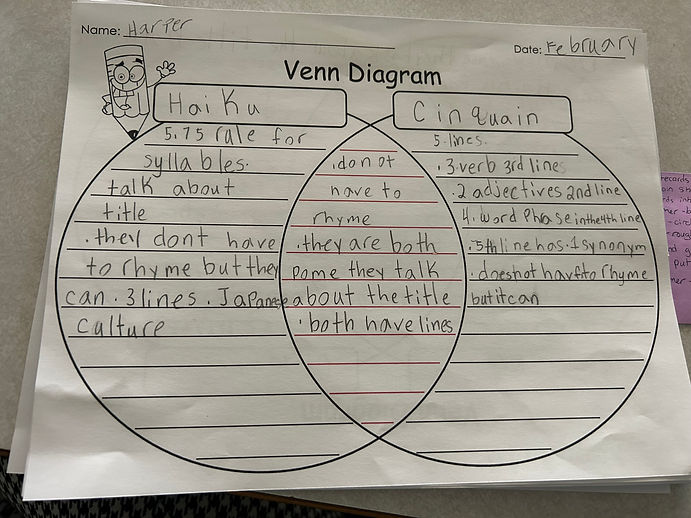 Name: Harper
Date: February
Venn Diagram
Haiku
5.75 rule for
syllables.
talk about
title
.they dont have
to rhyme but they
can . 3 lines . Japanese
culture
.don ot
have to
rhyme
.they are both
pome they talk
about the title
.both have lines
Cinquain
5 lines.
.3 verb 3rd lines
.2 adjectives 2nd line
4. word Phrase in the 4th line
.5th line has.1 synonym
.does not have to rhyme
but it can
records